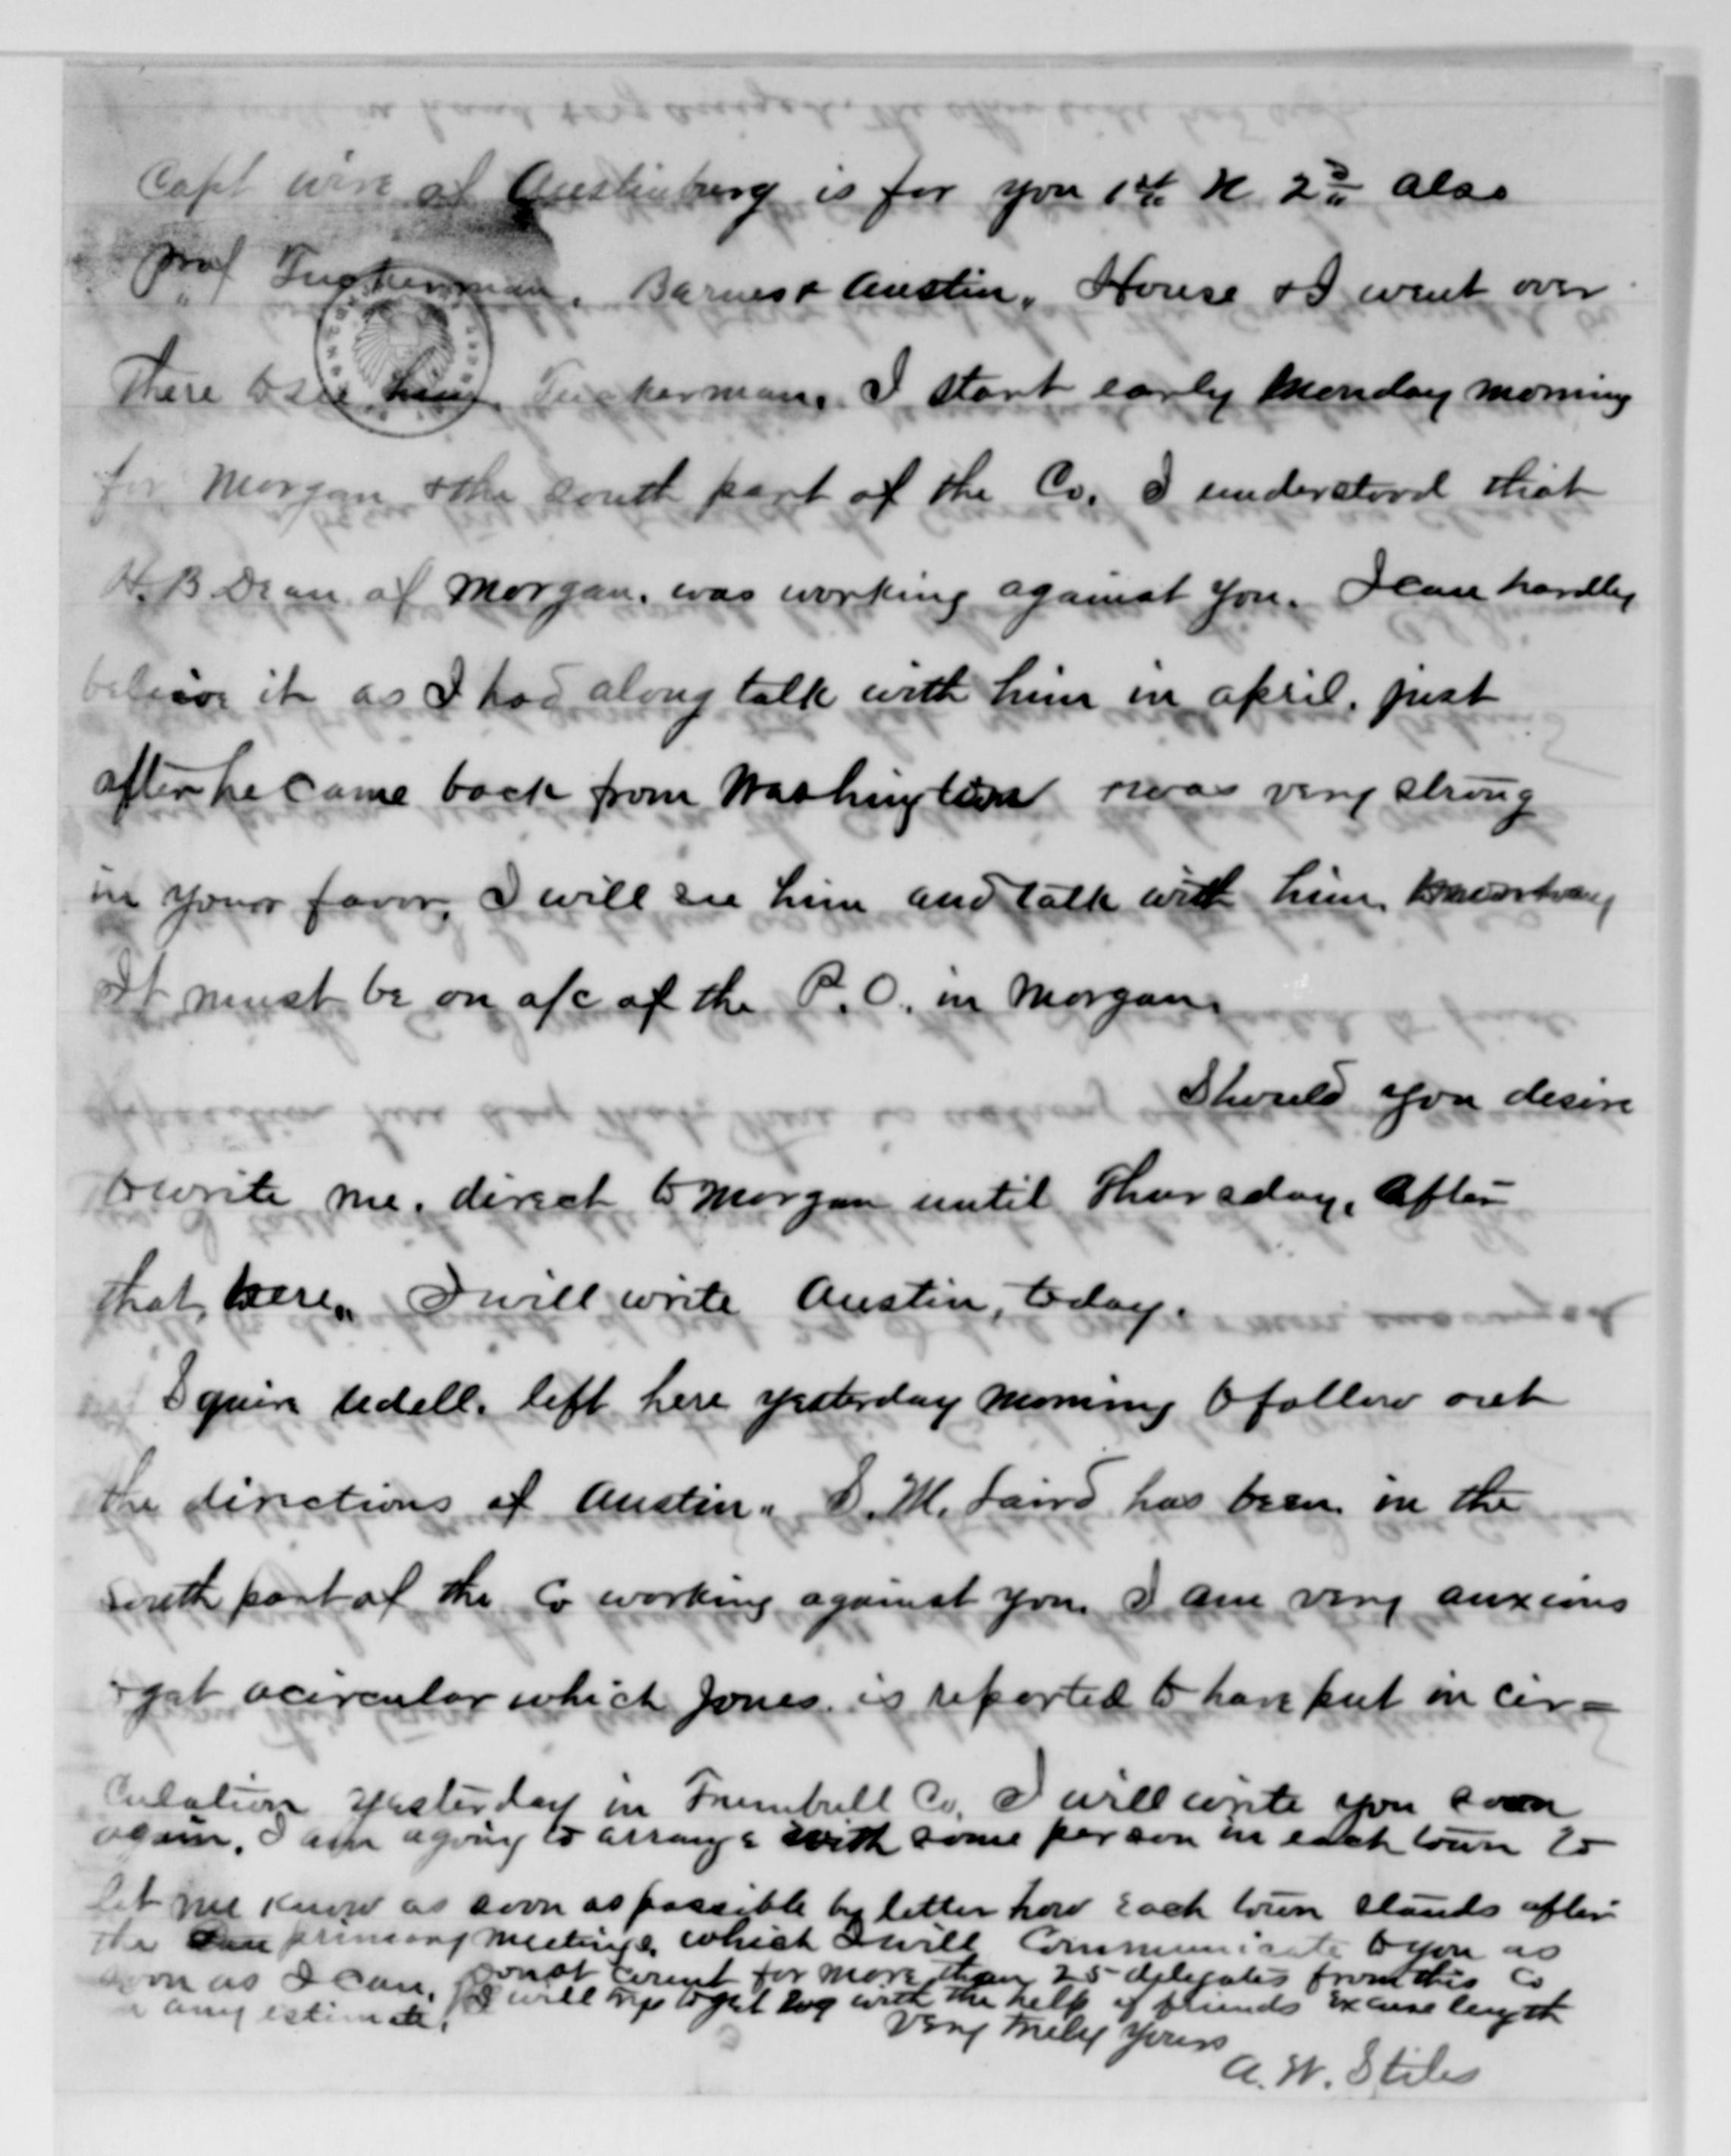 Capt wire of Austinburg is for you 1st & 2d also
Prof Tuckerman. Barnes & Austin, House & I went over
There to see him Tuckerman. I start early Monday morning
for Morgan & the south part of the Co. I understood that
H. B Dean of Morgan. was working against you. I can hardly
believe it as I had along talk with him in april. just
after he came back from Washington was very strong
in your favor, I will see him and talk with him.
It must be on a/c of the P. O. in Morgan.
Should you desire
to write me. direct to Morgan until Thursday, After
that, here, I will write Austin, today.
Squire Udell. left here yesterday morning to follow out
the directions of Austin. S. M. Laird has been in the
south part of the Co working against you. I am very anxious
to get a circular which Jones. is reported to have put in cir=
culation yesterday in Trumbull Co, I will write you soon
again. I am agoing to arrange with some person in each town to
let me know as soon as possible by letter how each town stands after
the primary meetings, which I will Communicate to you as
soon as I can. Donot count for more than 25 delegates from this Co
in any estimate. I will try to get with the help of friends Excuse length
very truly yours
A. W. Stiles